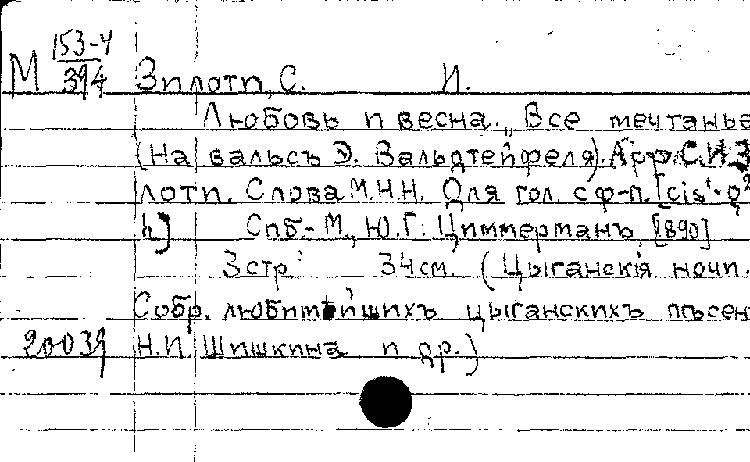 М 153-4
394 Зилоти, С. И.
Любовь и весна. „Все мечтанье
(На вальсъ Э. Вальдтейфеля). Арр. С.И.З
лоти. Слова М.Н.Н. Для гол. с ф-п. [cis¹-g²
h] Спб.-М., Ю.Г. Циммерманъ, [1890]
3 стр. 34 см. (Цыганскія ночи.
Собр. любимѣйшихъ цыганскихъ пѣсен
20039 Н.И. Шишкина и др.)